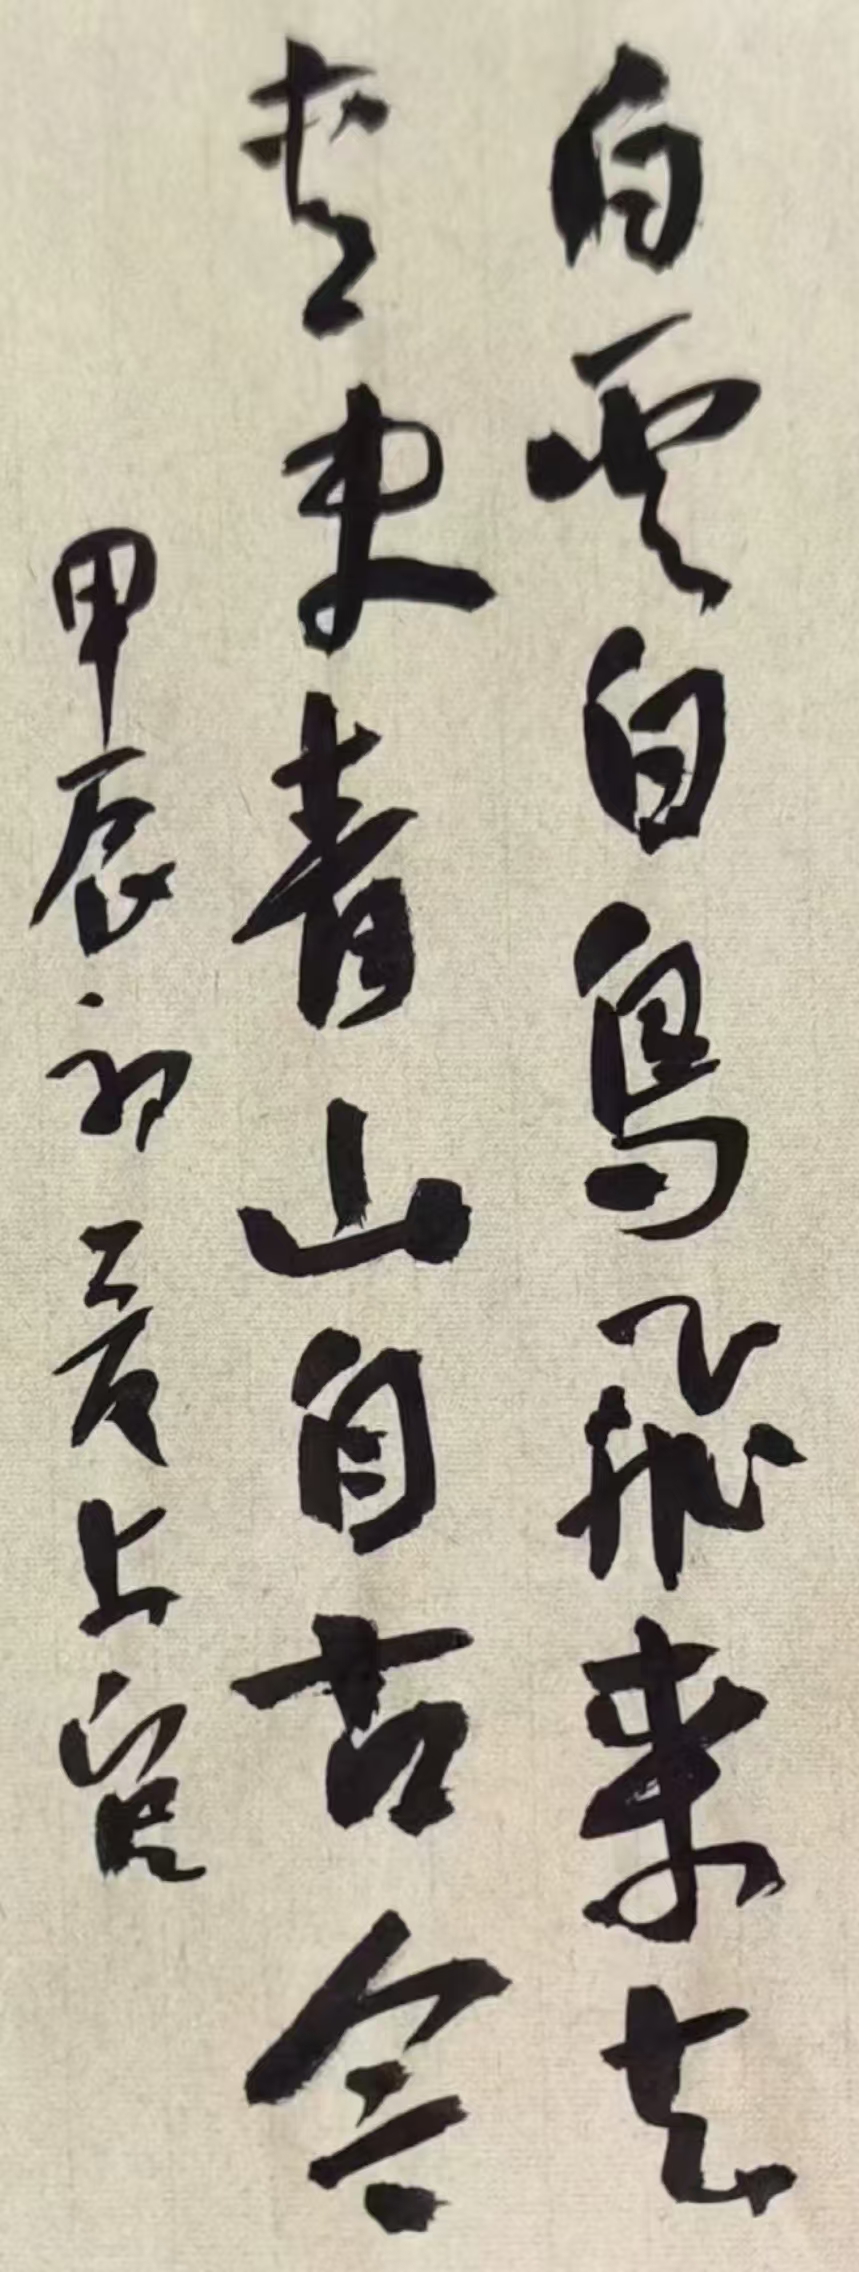 白云白鳥飛来去
青史青山自古今
甲辰初夏上官